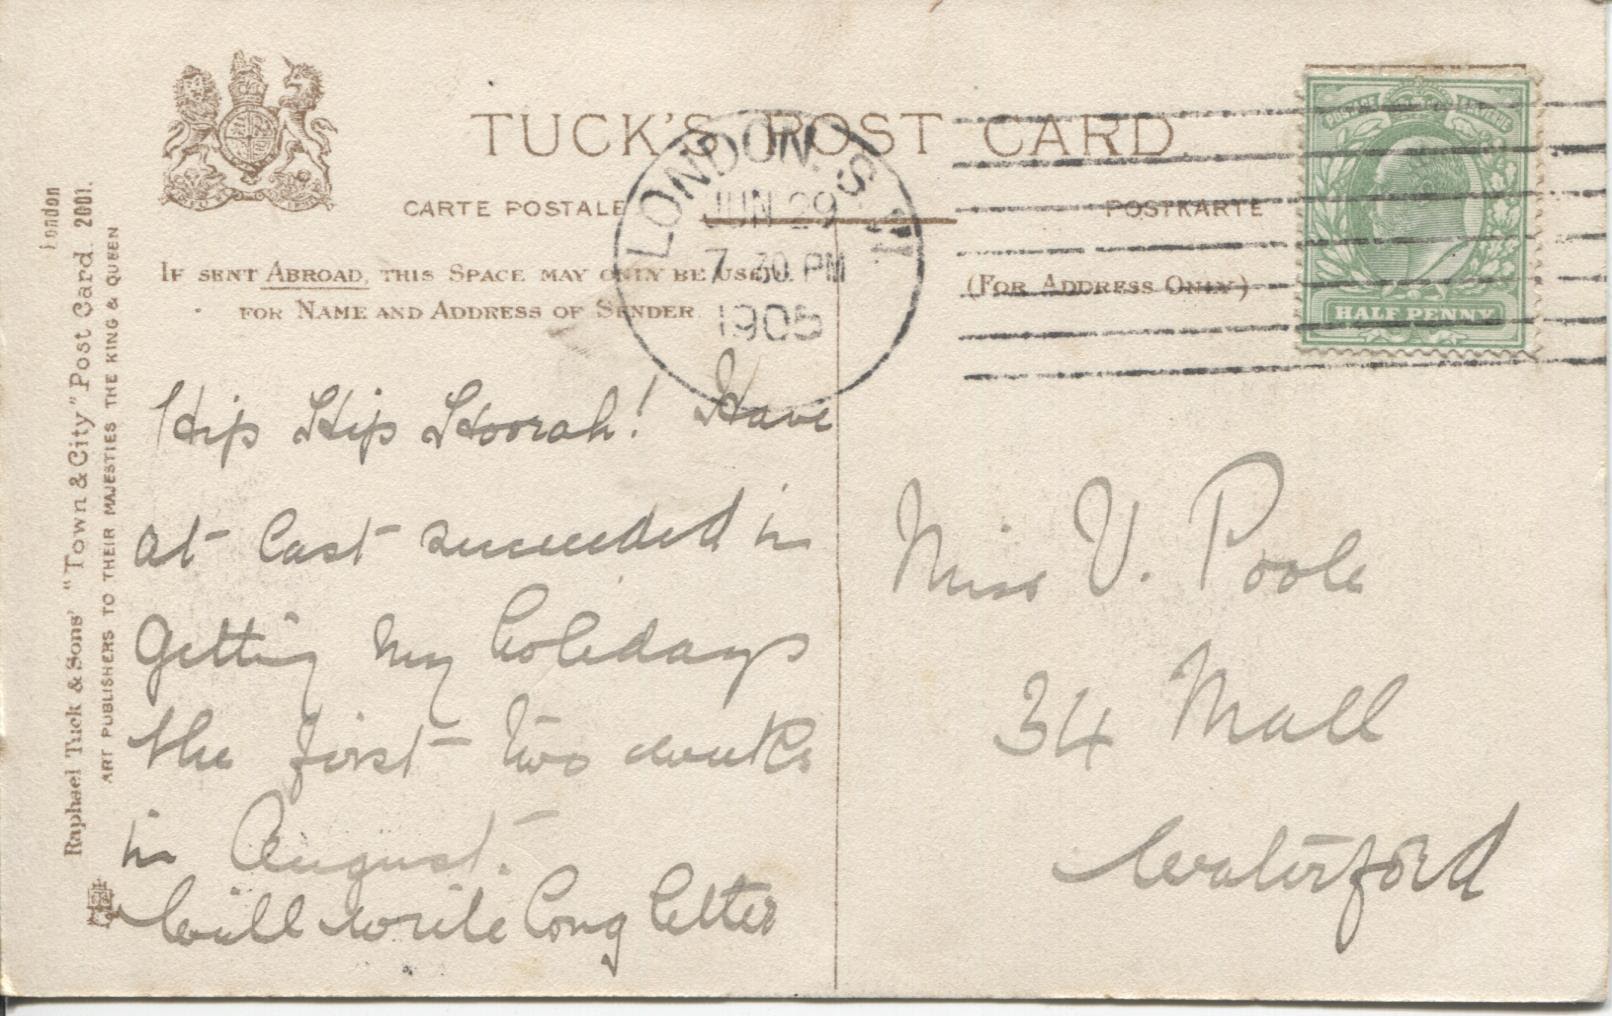 TUCK'S POST CARD.
CARTE POSTALE
POSTKARTE
IF SENT ABROAD, THIS SPACE MAY ONLY BE USED
FOR NAME AND ADDRESS OF SENDER
(FOR ADDRESS ONLY)
LONDON. S.
JUN 29
7 30 PM
1905
POSTAGE REVENUE
HALF PENNY
London
Raphael Tuck & Sons' "Town & City" Post Card. 2001.
ART PUBLISHERS TO THEIR MAJESTIES THE KING & QUEEN
Hip Hip Hoorah! Have
at last succeeded in
getting my holidays
the first two weeks
in August.
Will write long letter
Miss V. Poole
34 Mall
Waterford